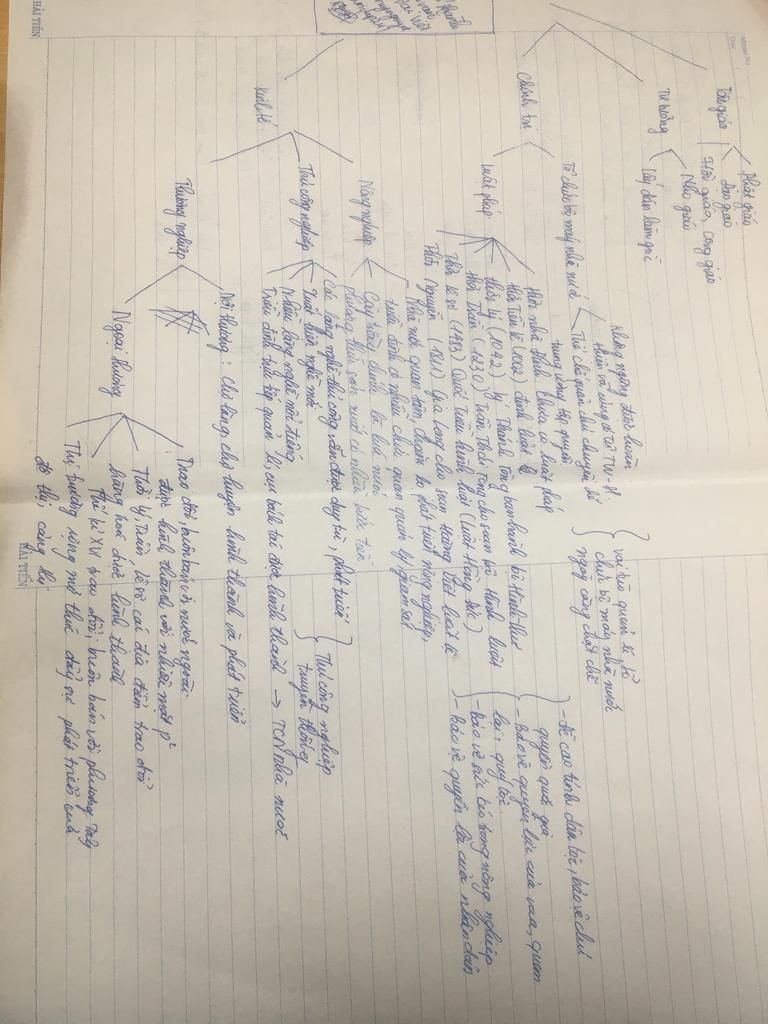 HẢI TIẾN
Tôn giáo
Phật giáo
Đạo giáo
Nho giáo
Hồi giáo, Công giáo
Tư tưởng
Lấy dân làm gốc
Chính trị
Tổ chức bộ máy nhà nước
không ngừng được hoàn
thiện và củng cố từ TW - ĐP
Thể chế quân chủ chuyên chế
trung ương tập quyền
vai trò quản lí bộ
chức bộ máy nhà nước
ngày càng chặt chẽ
Luật pháp
thời nhà Đinh chưa có luật pháp
thời Tiền lê (1002) định luật lệ
thời Lý (1042) Lý Thánh Tông ban hành bộ Hình thư
thời Trần (1230) Trần Thái Tông cho soạn bộ Hình luật
Thời lê sơ (1483) Quốc Triều hình luật (luật Hồng Đức)
Thời Nguyễn (1811) Gia Long cho soạn Hoàng Việt luật lệ
- đề cao tính dân tộc, bảo vệ chủ
quyền quốc gia
- Bảo vệ quyền lực của vua, quan
lại, quý tộc
- bảo vệ sức kéo trong nông nghiệp
- bảo vệ quyền lợi của nhân dân
Kinh tế
Nông nghiệp
Nhà nước quan tâm, chăm lo phát triển nông nghiệp,
triều đình có nhiều chức quan quản lý, giám sát
Cây trồng chính là lúa nước
phương thức sản xuất có nhiều bước tiến
Thủ công nghiệp
Các làng nghề thủ công vẫn được duy trì, phát triển
Xuất hiện nghề mới
Nhiều làng nghề nổi tiếng
Thủ công nghiệp
truyền thống
Triều đình trực tiếp quản lí, cục bách tác được hình thành → TCN nhà nước
Thương nghiệp
Nội thương: Chợ làng, chợ huyện hình thành và phát triển
Ngoại thương
Trao đổi, buôn bán với nước ngoài
được hình thành với nhiều mặt
Thời Lý, Trần, lê sơ các địa điểm trao đổi
hàng hoá được hình thành
Thế kỉ XV trao đổi, buôn bán với phương Tây
Thị trường rộng mở thúc đẩy sự phát triển của
đô thị, cảng thị
HẢI TIẾN